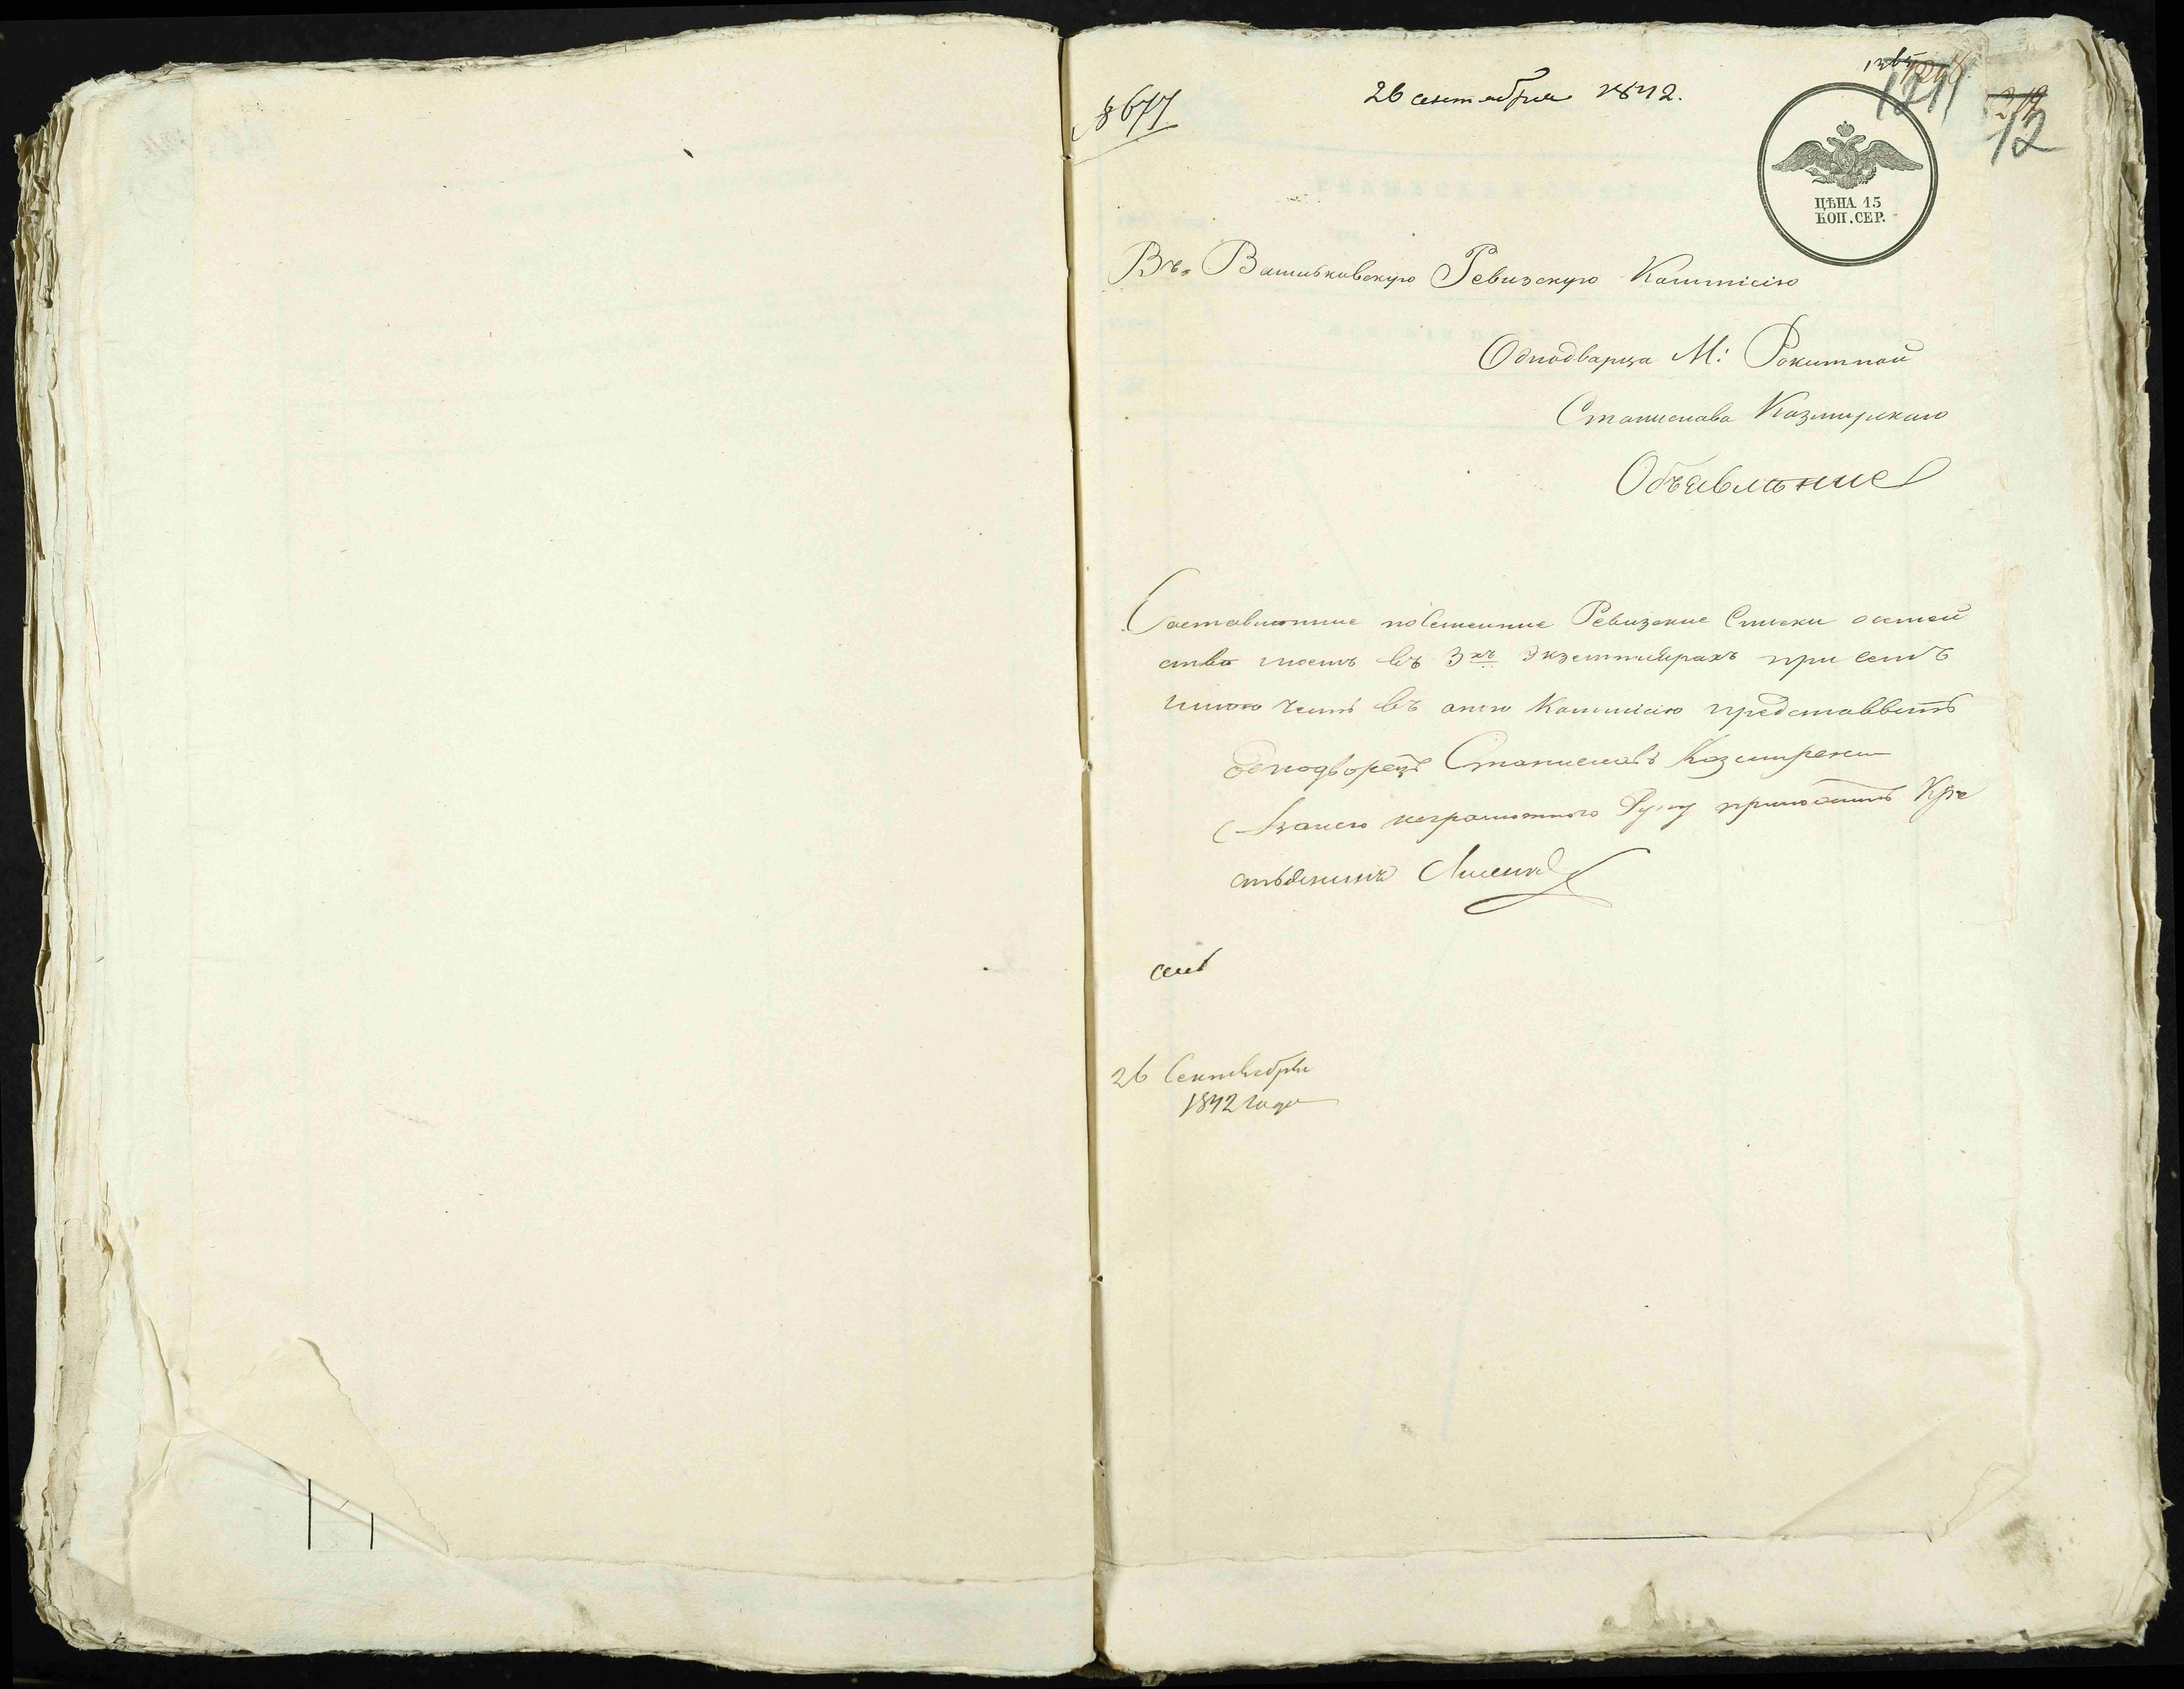 № 677
26 сентября 1842.
12
ЦѢНА 15
КОП. СЕР.
Въ Васильковскую Ревизскую Коммисію
Однодварца М: Рокитной
Станислава Казмирскаго
Объявление
Составленные посемейные Ревизские Списки осемей
стве моемъ въ 3хъ Экземплярахъ при семъ
имею честь въ оную Коммисию представить
Однодворецъ Станиславъ Казмирски
неграмотного Руку приложилъ Кре
стьянинъ
26 Сентября
1842 года